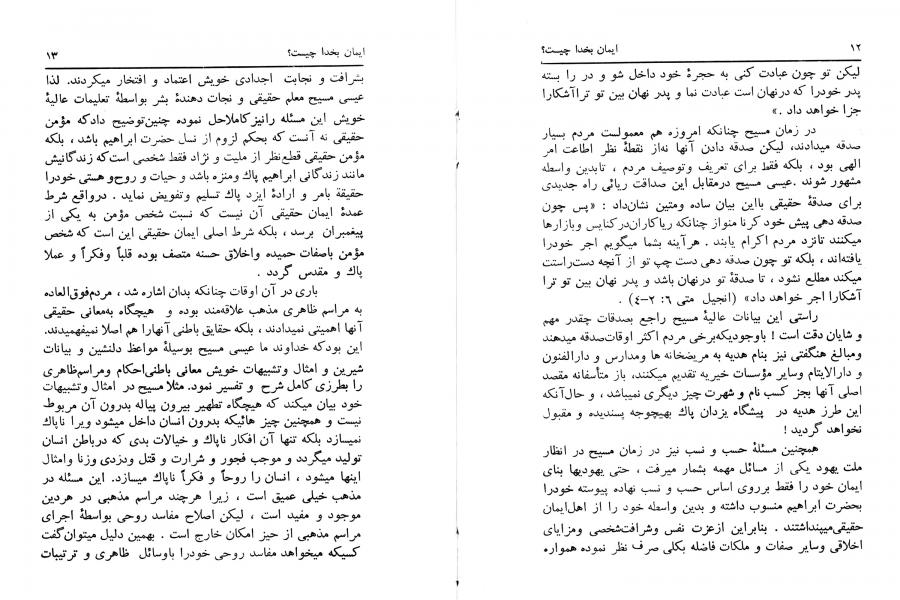 ۱۲ ایمان بخدا چیست؟
لیکن تو چون عبادت کنی به حجرهٔ خود داخل شو و در را بسته
پدر خودرا که درنهان است عبادت نما و پدر نهان بین تو تراآشکارا
جزا خواهد داد .»
در زمان مسیح چنانکه امروزه هم معمولست مردم بسیار
صدقه میدادند، لیکن صدقه دادن آنها نه‌از نقطهٔ نظر اطاعت امر
الهی بود ، بلکه فقط برای تعریف وتوصیف مردم ، تابدین واسطه
مشهور شوند .عیسی مسیح درمقابل این صداقت ریائی راه جدیدی
برای صدقهٔ حقیقی بااین بیان ساده ومتین نشان‌داد : «پس چون
صدقه دهی پیش خود کرنا منواز چنانکه ریاکاران‌درکنایس وبازارها
میکنند تانزد مردم اکرام یابند . هرآینه بشما میگویم اجر خودرا
یافته‌اند ، بلکه تو چون صدقه دهی دست چپ تو از آنچه دست‌راستت
میکند مطلع نشود ، تا صدقهٔ تو درنهان باشد و پدر نهان بین تو ترا
آشکارا اجر خواهد داد» (انجیل متی ۶: ۲–۴) .
راستی این بیانات عالیهٔ مسیح راجع بصدقات چقدر مهم
و شایان دقت است ! باوجودیکه‌برخی مردم اکثر اوقات‌صدقه میدهند
ومبالغ هنگفتی نیز بنام هدیه به مریضخانه ها ومدارس و دارالفنون
و دارالایتام وسایر مؤسسات خیریه تقدیم میکنند، باز متأسفانه مقصد
اصلی آنها بجز کسب نام و شهرت چیز دیگری نمیباشد ، و حال‌آنکه
این طرز هدیه در پیشگاه یزدان پاك بهیچوجه پسندیده و مقبول
نخواهد گردید !
همچنین مسئلهٔ حسب و نسب نیز در زمان مسیح در انظار
ملت یهود یکی از مسائل مهمه بشمار میرفت ، حتی یهودیها بنای
ایمان خود را فقط برروی اساس حسب و نسب نهاده پیوسته خودرا
بحضرت ابراهیم منسوب داشته و بدین واسطه خود را از اهل‌ایمان
حقیقی‌میپنداشتند . بنابراین ازعزت نفس وشرافت‌شخصی ومزایای
اخلاقی وسایر صفات و ملکات فاضله بکلی صرف نظر نموده همواره
ایمان بخدا چیست؟ ۱۳
بشرافت و نجابت اجدادی خویش اعتماد و افتخار میکردند. لذا
عیسی مسیح معلم حقیقی و نجات دهندهٔ بشر بواسطهٔ تعلیمات عالیهٔ
خویش این مسئله رانیزکاملاحل نموده چنین‌توضیح دادکه مؤمن
حقیقی نه آنست که بحکم لزوم از نسل حضرت ابراهیم باشد ، بلکه
مؤمن حقیقی قطع‌نظر از ملیت و نژاد فقط شخصی است‌که زندگانیش
مانند زندگانی ابراهیم پاك ومنزه باشد و حیات و روح‌وهستی خودرا
حقیقة بامر و ارادهٔ ایزد پاك تسلیم وتفویض نماید . درواقع شرط
عمدهٔ ایمان حقیقی آن نیست که نسبت شخص مؤمن به یکی از
پیغمبران برسد ، بلکه شرط اصلی ایمان حقیقی این است که شخص
مؤمن باصفات حمیده واخلاق حسنه متصف بوده قلباً وفکراً و عملا
پاك و مقدس گردد .
باری در آن اوقات چنانکه بدان اشاره شد ، مردم‌فوق‌العاده
به مراسم ظاهری مذهب علاقه‌مند بوده و هیچگاه به‌معانی حقیقی
آنها اهمیتی نمیدادند ، بلکه حقایق باطنی آنهارا هم اصلا نمیفهمیدند.
این بودکه خداوند ما عیسی مسیح بوسیلهٔ مواعظ دلنشین و بیانات
شیرین و امثال وتشبیهات خویش معانی باطنی‌احکام ومراسم‌ظاهری
را بطرزی کامل شرح و تفسیر نمود. مثلا مسیح در امثال وتشبیهات
خود بیان میکند که هیچگاه تطهیر بیرون پیاله بدرون آن مربوط
نیست و همچنین چیز هائیکه بدرون انسان داخل میشود ویرا ناپاك
نمیسازد بلکه تنها آن افکار ناپاك و خیالات بدی که درباطن انسان
تولید میگردد و موجب فجور و شرارت و قتل ودزدی وزنا وامثال
اینها میشود ، انسان را روحاً و فکراً ناپاك میسازد. این مسئله در
مذهب خیلی عمیق است ، زیرا هرچند مراسم مذهبی در هردین
موجود و مفید است ، لیکن اصلاح مفاسد روحی بواسطهٔ اجرای
مراسم مذهبی از حیز امکان خارج است . بهمین دلیل میتوان‌گفت
کسیکه میخواهد مفاسد روحی خودرا باوسائل ظاهری و ترتیبات